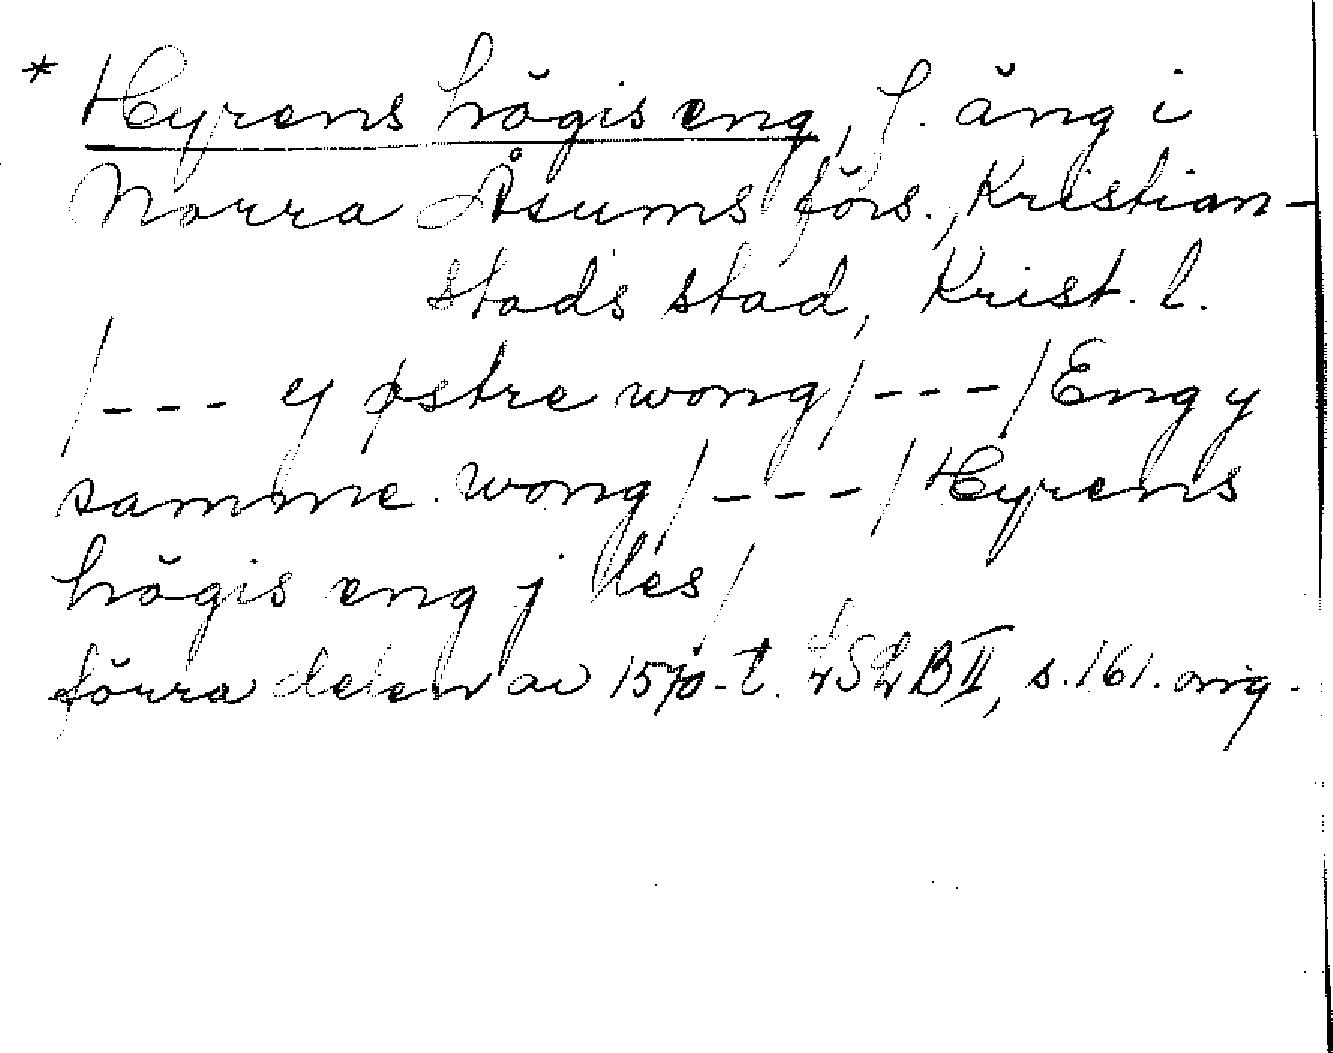 * Hyrens högis eng, f. äng i
Norra Åsums förs., Kristian-
stads stad, Krist. l.
/--- ej østre wong/---/Eng y
samme wong/---/Hyrens
högis eng j des/
förra delen av 1570-t. LSLB II, s. 161. orig.